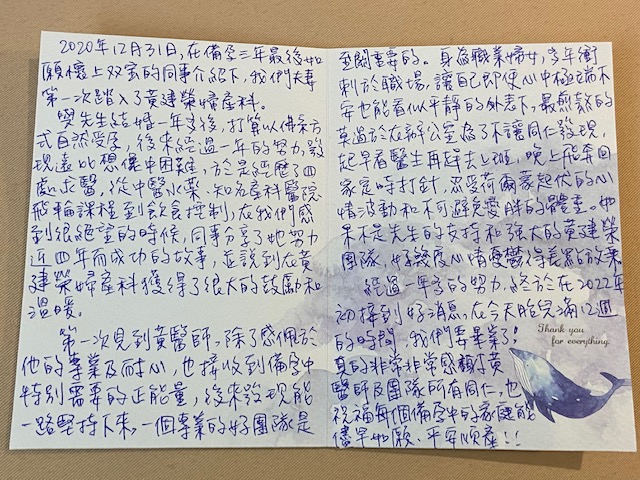 2020年12月31日,在備孕三年最後如
願懷上双寶的同事介紹下,我們夫妻
第一次踏入了黃建榮婦產科。
與先生結婚一年多後,打算以佛系方
式自然受孕,後來經過一年的努力,發
現遠比想像中困難,於是經歷了四
處求醫,從中醫水藥、知名產科醫院
飛輪課程到飲食控制,在我們感
到很絕望的時候,同事分享了她努力
近四年而成功的故事,並說到在黃
建榮婦產科獲得了很大的鼓勵和
溫暖。
第一次見到黃醫師,除了感佩於
他的專業及耐心,也接收到備孕中
特別需要的正能量,後來發現能
一路堅持下來,一個專業的好團隊是
至關重要的。身為職業婦女,多年衝
刺於職場,讓自己即使心中極端不
安也能看似平靜的外表下,最煎熬的
莫過於在辦公室為了不讓同仁發現,
起早看醫生再趕去上班,晚上飛奔回
家定時打針,忍受荷爾蒙起伏的心
情波動和不可避免變胖的體重。如
果不是先生的支持和強大的黃建榮
團隊,好幾度心情憂鬱得差點放棄。
經過一年多的努力,終於在2022年
初接到好消息,在今天胎兒滿12週
的時間,我們要畢業了!
真的非常非常感謝黃
醫師及團隊所有同仁,也
祝福每個備孕中的家庭能
儘早如願、平安順產!!
Thank you
for everything.